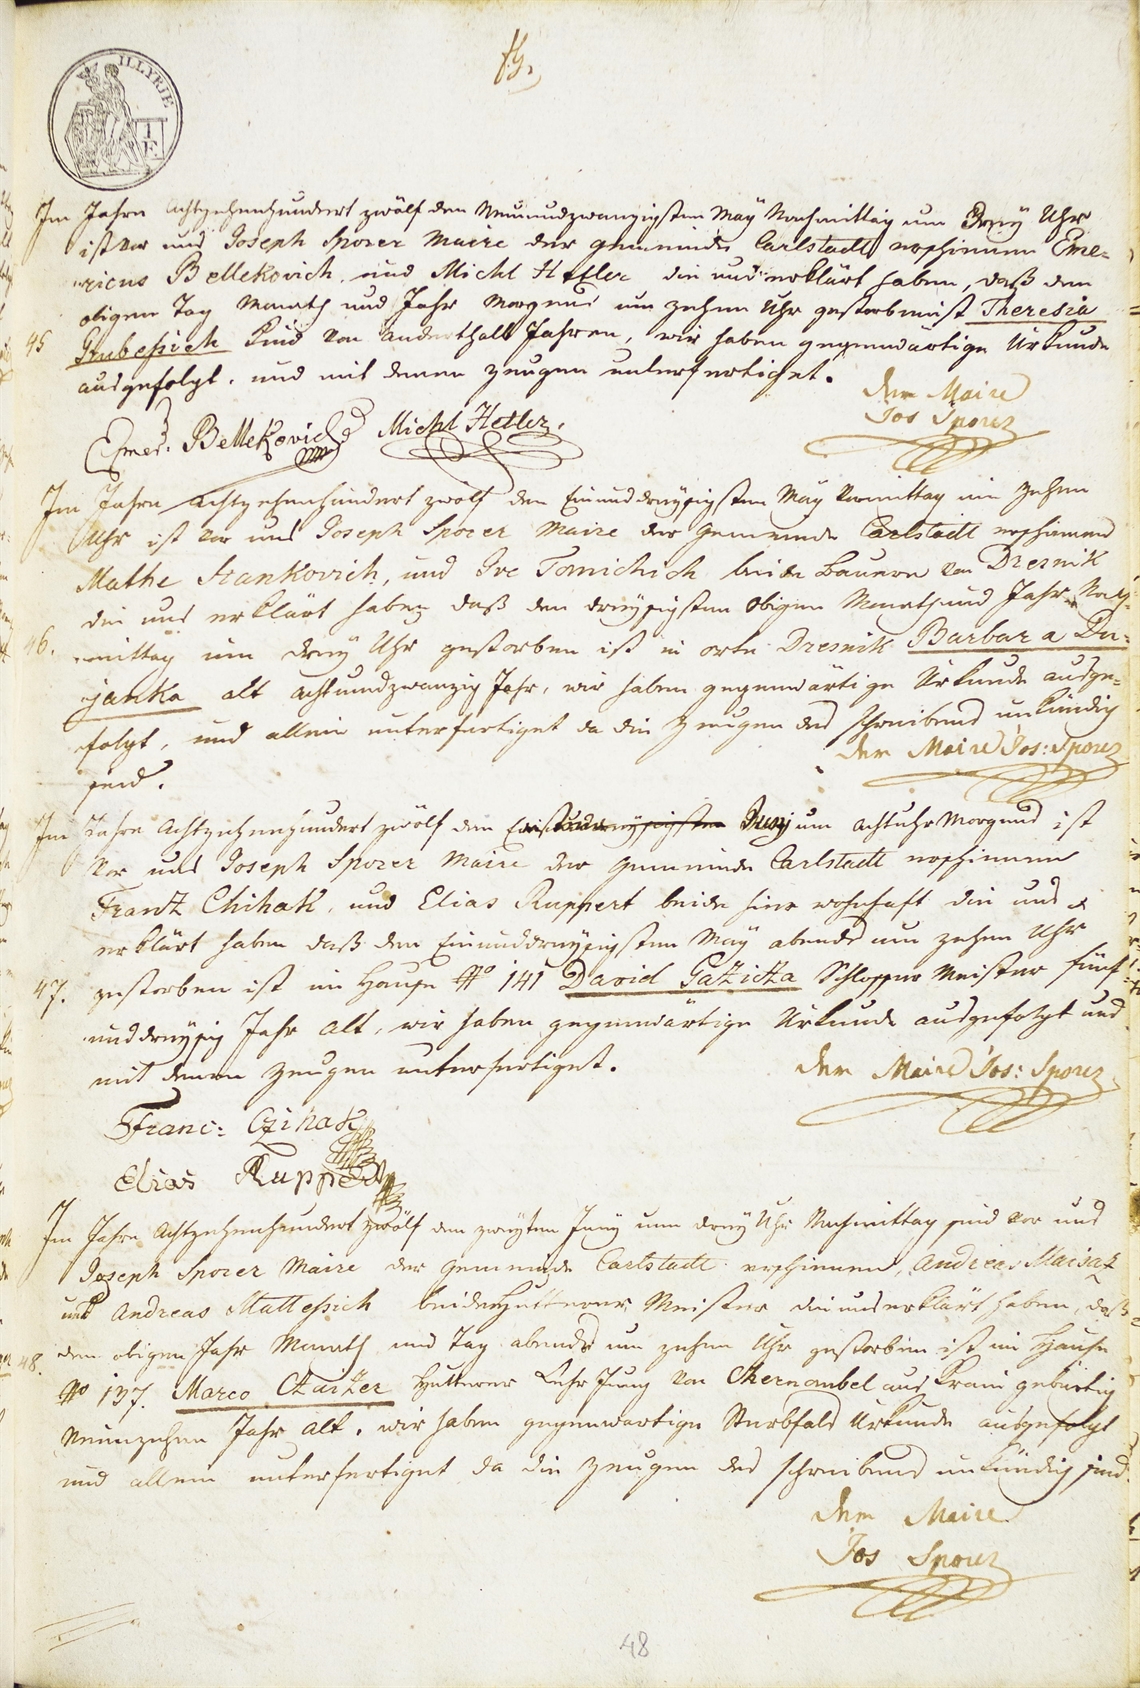 ILLYRIE
Im Jahre Achtzehenhundert zwölf den Neunundzwanzigsten May Nachmittag um Drey Uhr
ist vor uns Joseph Sporer Maire der Gemeinde Carlstadt erschienen Eme=
ricus Bellekovich und Michl Hetler die uns erklärt haben, daß den
obigen Tag Monath und Jahr Morgens um zehen Uhr gestorben ist Theresia
45
Grubeßich Kind von anderthalb Jahren, wir haben gegenwärtige Urkunde
ausgefolgt, und mit denen Zeugen unterfertiget.
Der Maire
Jos Sporer
Emer: Bellekovich Michl Hetler
Im Jahre Achtzehenhundert zwölf den Einunddreyßigsten May Vormittag um Zehen
Uhr ist vor uns Joseph Sporer Maire der Gemeinde Carlstadt erschienen
Mathe Stankovich, und Ive Tomichich beide Bauern von Dresnik
die uns erklärt haben daß den dreyßigsten obigen Monath und Jahr Nach=
46.
mittag um drey Uhr gestorben ist in orte Dresnik Barbara Du=
janka alt achtundzwanzig Jahr, wir haben gegenwärtige Urkunde ausge=
folgt, und allein unterfertiget da die Zeugen des schreibens unkündig
sind.
Der Maire Jos: Sporer
Im Jahre Achtzehenhundert zwölf den Ersten Juny um acht Uhr Morgens ist
vor uns Joseph Sporer Maire der Gemeinde Carlstadt erschienen
Frantz Chihak, und Elias Ruppert beide hier wohnhaft die uns
erklärt haben daß den Einunddreyßigsten May abends um zehen Uhr
47.
gestorben ist im Hause No 141 David Gaziczka Schlosser Meister fünf
unddreyßig Jahr alt, wir haben gegenwärtige Urkunde ausgefolgt und
mit denen Zeugen unterfertiget.
Der Maire Jos: Sporer
Franc: Czihak
Elias Ruppert
Im Jahre Achtzehenhundert zwölf den zweyten Juny um drey Uhr Nachmittag sind vor uns
Joseph Sporer Maire der Gemeinde Carlstadt erschienen, Andreas Maisaz
und Andreas Matteßich beide Hutterer Meister die uns erklärt haben, daß
den obigen Jahr Monath und Tag abends um zehen Uhr gestorben ist im Hause
48.
No 137. Marco Czaizer Hutterer Lehr Jung von Chernembel aus Krain gebürtig
Neunzehen Jahr alt. wir haben gegenwärtige Sterbfals Urkunde ausgefolgt
und allein unterfertiget da die Zeugen des schreibens unkündig sind.
Der Maire
Jos Sporer
48